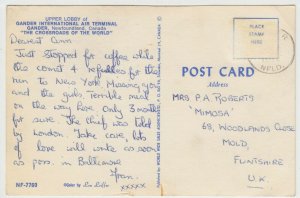 UPPER LOBBY of
GANDER INTERNATIONAL AIR TERMINAL
GANDER, Newfoundland, Canada
"THE CROSSROADS OF THE WORLD"
Dearest
Just stopped for coffee while
the Comet 4 refuelled for the
run to New York. Missing you
and the gals. Terrible meal
on the way here Only 3 months
for sure. The Chief was told
by London. Take care lots
of love will write as soon
as poss. in Baltimore
Fran.
xxxxx
NF-7760
PLACE
STAMP
HERE
NFLD.
POST CARD
Address
MRS P.A. ROBERTS
"MIMOSA"
68, WOODLANDS CLOSE
MOLD,
FLINTSHIRE
U.K.